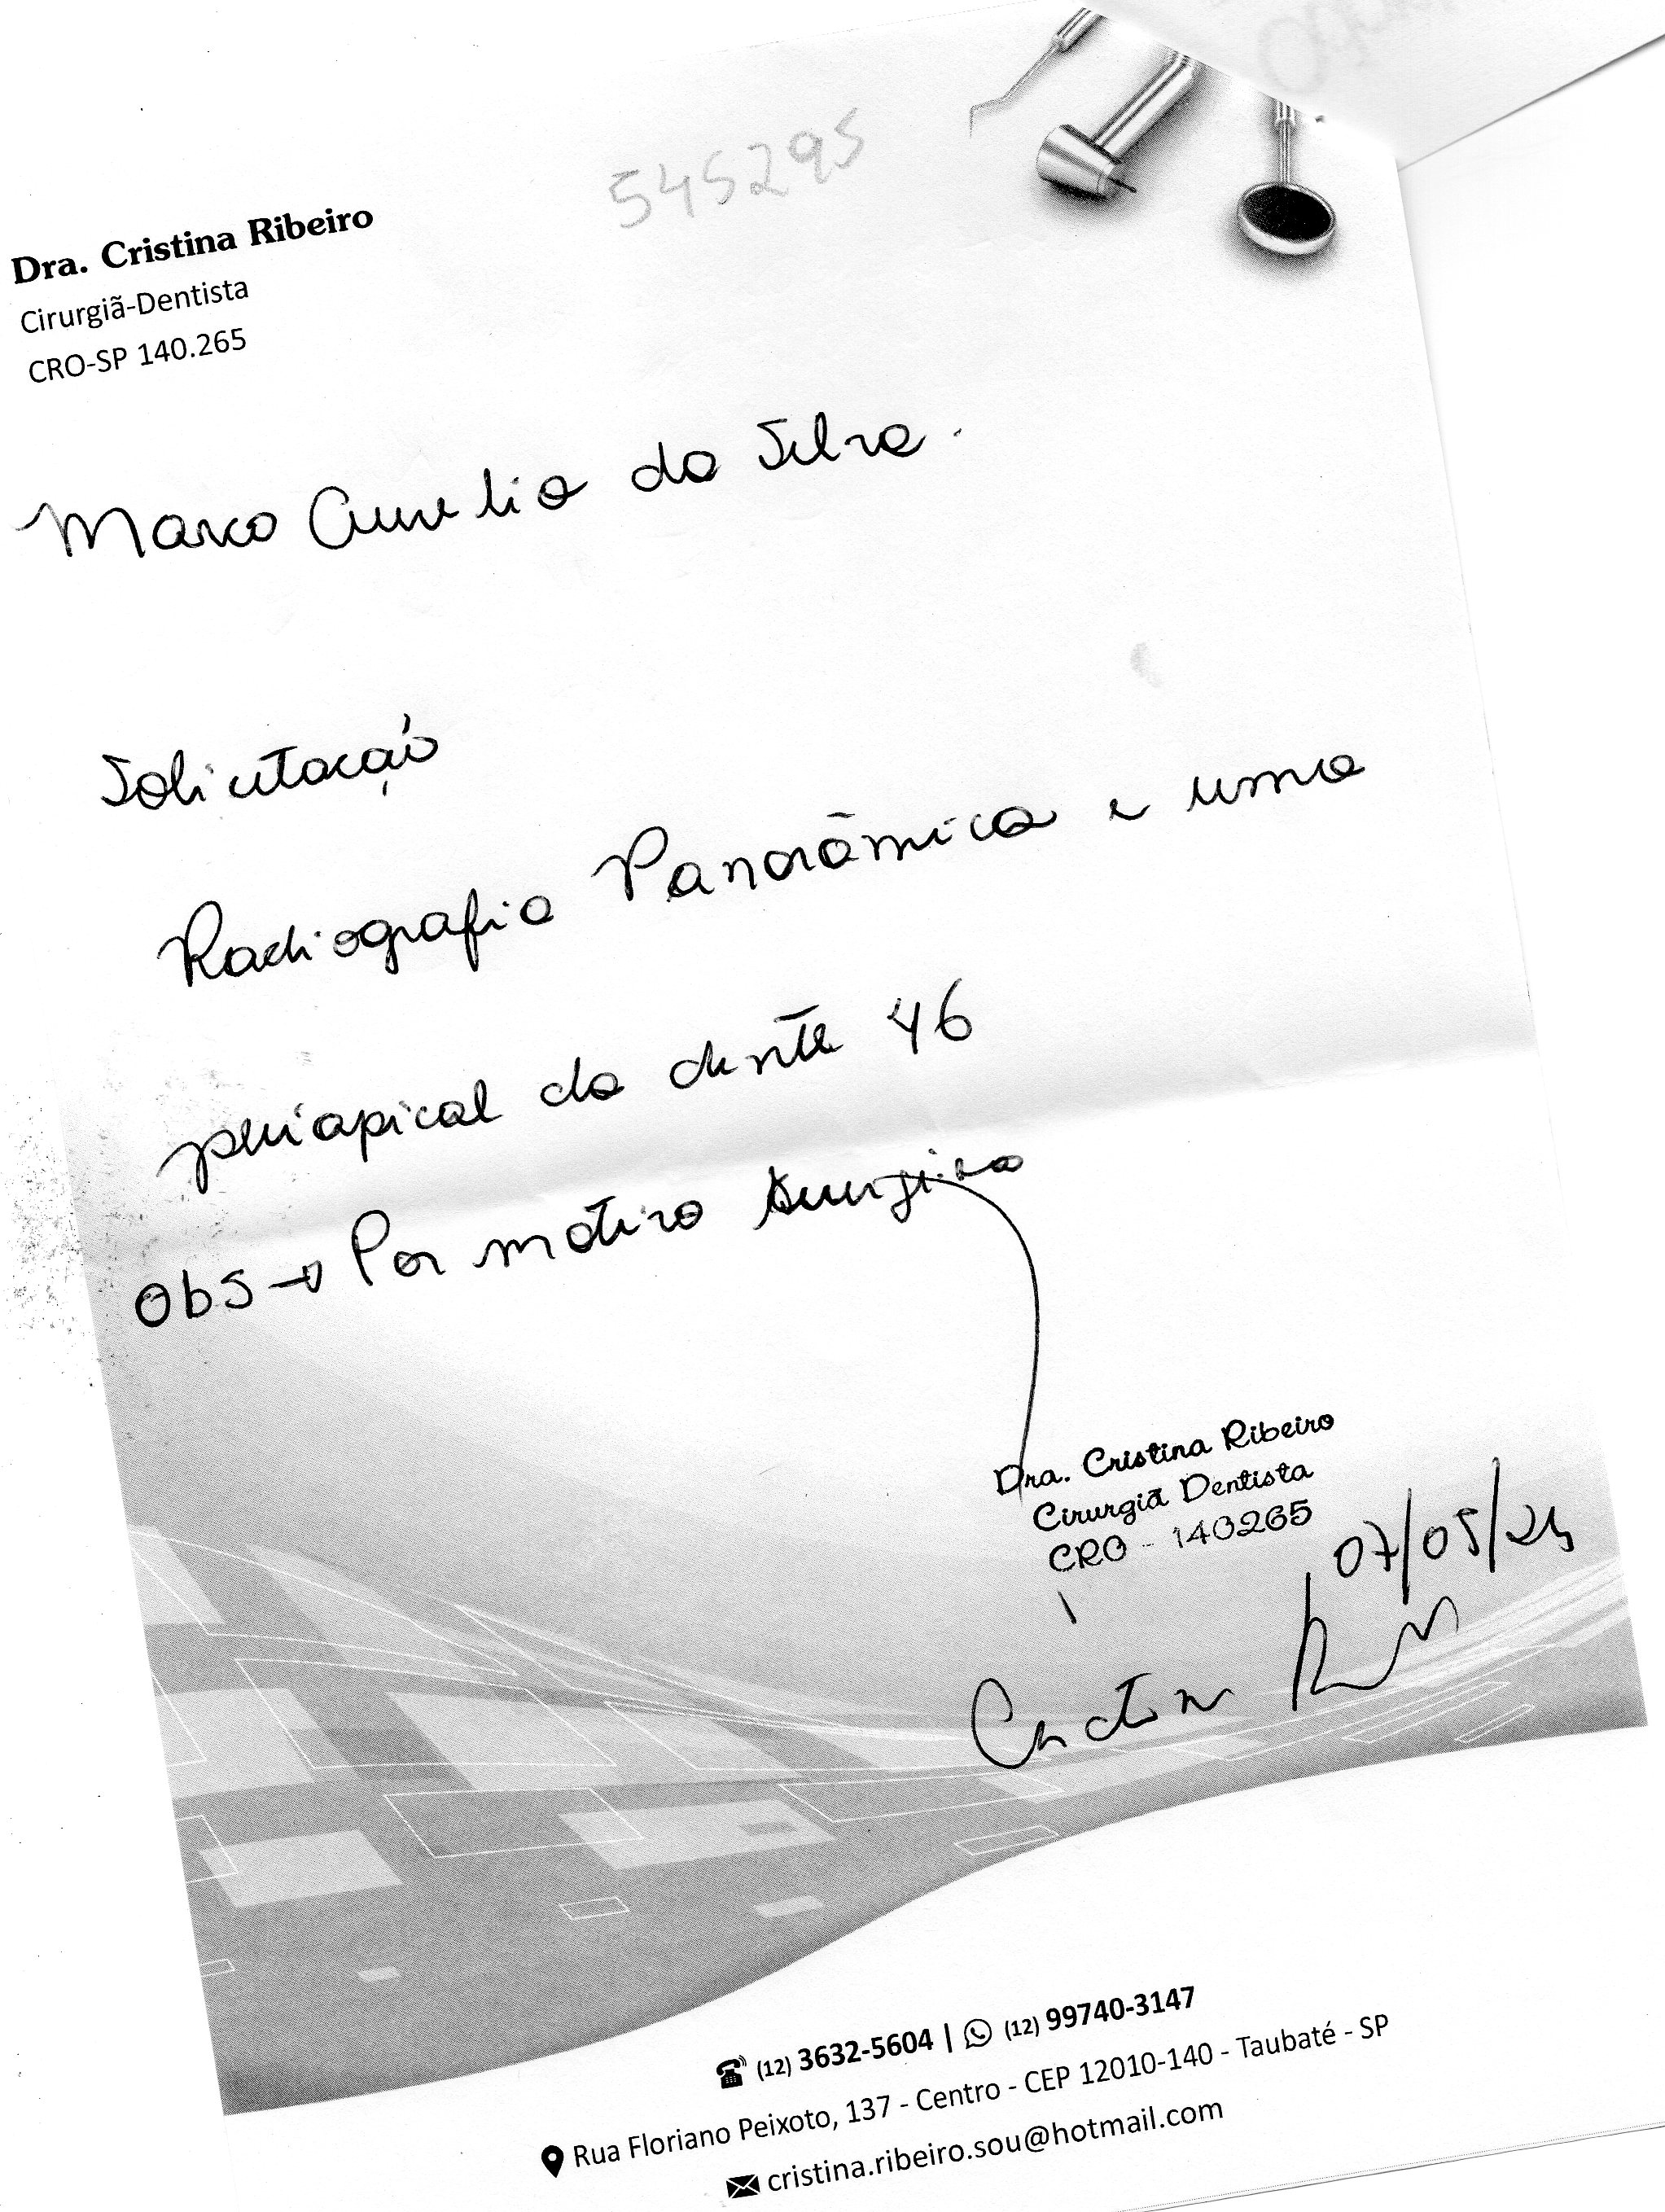 545295
Dra. Cristina Ribeiro
Cirurgiã-Dentista
CRO-SP 140.265
Marco Aurelio da Silva.
Solicitação
Radiografia Panorâmica e uma
periapical do dente 46
Obs → Por motivo
Dra. Cristina Ribeiro
Cirurgiã Dentista
CRO - 140265
07/05/
(12) 3632-5604 | (12) 99740-3147
Rua Floriano Peixoto, 137 - Centro - CEP 12010-140 - Taubaté - SP
cristina.ribeiro.sou@hotmail.com